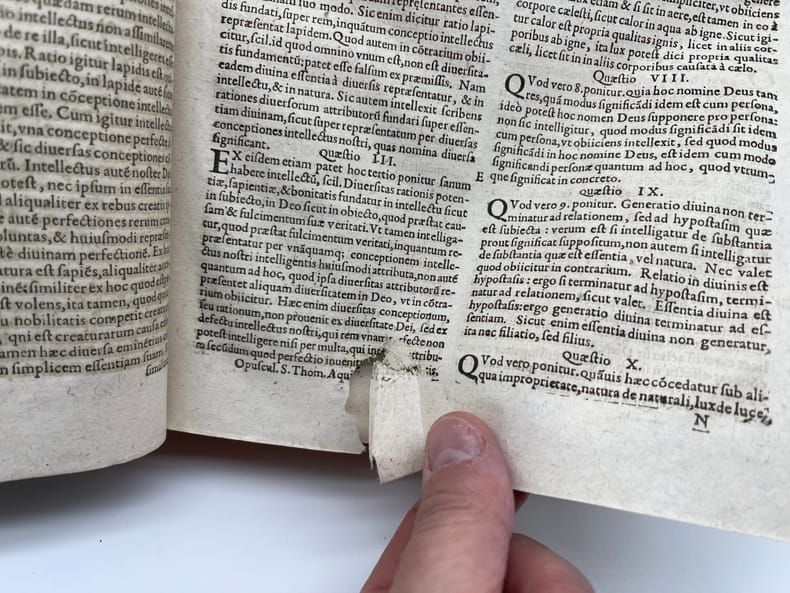 quædam rerum intellect
o intellectus non assimilare
de re illa, sicut intelligeret es
s. Ratio igitur lapidis est qui
in subiecto, in lapide autē sicu
tatem in cōceptione intellect
em esse. Cum igitur intellect
it, vna conceptione perfecte
& sic diuersas conceptiones
rū. Intellectus autē noster De
otest, nec ipsum in essentia
d aliqualiter ex rebus creatis
autē perfectiones rerum crea
oluntas, & huiusmodi repræsen
tē diuinam perfectionē. Ex h
atura est sapiēs, aliqualiter acc
inē: similiter ex hoc quod est po
st volens, ita tamen, quod quic
u nobilitatis competit creatur
, qui est creaturarum causa eff
amen hæc diuersa eminētius &
m simplicem essentiam suam.
simili
o modo. Sic enim repræsentantes essen-
dis fundari, super rem, inquātum conceptio intellectus
repræsentat lapidem. Quod autem in cōtrarium obii-
citur, scil. id quod omnino vnum est, non est diuersita-
tis fundamentū: patet esse falsum ex præmissis. Nam
eadem diuina essentia à diuersis repræsentatur, & in
intellectu, & in natura. Sic autem intellexit scribens
rationes diuersorum attributorū fundari super essen-
tiam diuinam, sicut super repræsentatum per diuersas
conceptiones intellectus nostri, quas nomina diuersa
significant.
Quæstio III.
EX eisdem etiam patet hoc tertio ponitur sanum
habere intellectū, scil. Diuersitas rationis poten-
tiæ, sapientiæ, & bonitatis fundatur in intellectu sicut
in subiecto, in Deo sicut in obiecto, quod præstat cau-
sam & fulcimentum suæ veritati. Vt tamen intelliga-
tur, quod præstat fulcimentum veritati, inquantum re-
præsentatur per vnāquamq; conceptionem intelle-
ctus nostri intelligentis huiusmodi attributa, non autē
quantum ad hoc, quod ipsa diuersitas attributorū re-
præsentet aliquam diuersitatem in Deo, vt in cōtra-
rium obiicitur. Hæc enim diuersitas conceptionum,
seu rationum, non prouenit ex diuersitate Dei, sed ex
defectu intellectus nostri, qui rem vnam perfecte non
potest intelligere nisi per multa, qui attribu-
secūdum quod perfectio inuenit tis,
Opuscul. S. Thom. Aqui
corpore cælesti, sicut calor in aqua ab igne. Sicut igi-
tur calor est propria qualitas ignis, licet in aliis cor-
poribus ab igne, ita lux potest dici propria qualitas
cæli, licet sit in aliis corporibus causata à cælo.
Quæstio VIII.
QVod vero 8. ponitur. quia hoc nomine Deus tam
res, quā modus significādi idem est cum persona,
ideo potest hoc nomen Deus supponere pro persona:
non sic intelligitur, quod modus significādi sit idem
cum persona, vt obiiciens intellexit, sed quod modus
significādi in hoc nomine Deus, est idem cum modo
significandi personæ quantum ad hoc, quod vtrum-
E que significat in concreto.
Quæstio IX.
QVod vero 9. ponitur. Generatio diuina non ter-
minatur ad relationem, sed ad hypostasim quæ
est subiecta: verum est si intelligatur de substantia
prout significat suppositum, non autem si intelligatur
de substantia quæ est essentia, vel natura. Nec valet
quod obiicitur in contrarium. Relatio in diuinis est
hypostasis: ergo si terminatur ad hypostasim, termi-
natur ad relationem, sicut valet. Essentia diuina est
hypostasis: ergo generatio diuina terminatur ad es-
sentiam. Sicut enim essentia diuina non generatur,
ita nec filiatio, sed filius.
Quæstio X.
QVod vero. ponitur. Quāuis hæc cōcedatur sub ali-
qua improprietate, natura de naturali, lux de luce,
N